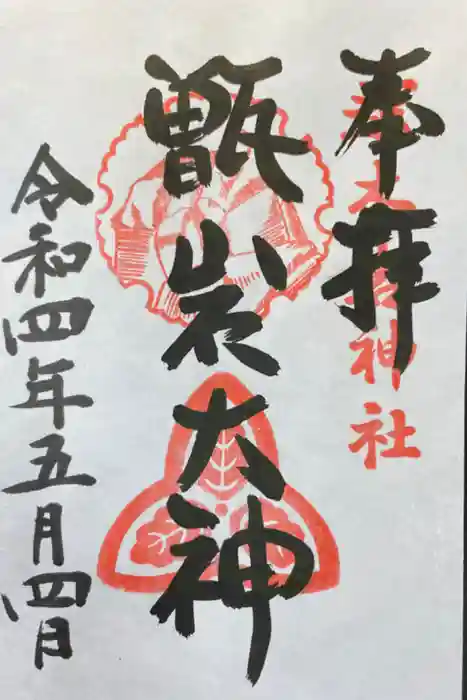 奉拝
神社
甑岩大神
令和四年五月四日